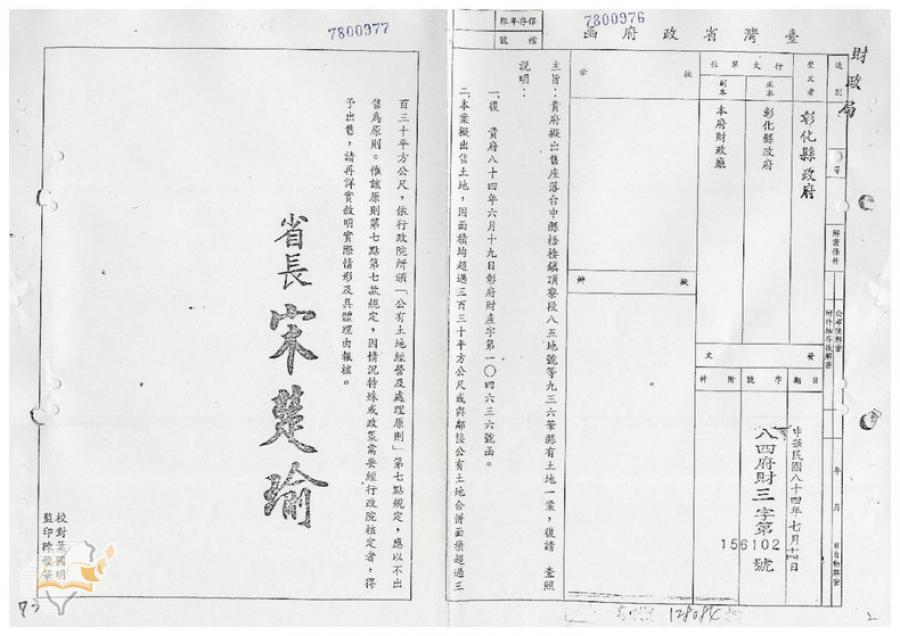 7800976
臺灣省政府函
保存年限
檔號
財政局
速別
受文者
彰化縣政府
行文單位
正本
彰化縣政府
副本
本府財政廳
批示
擬辦
發文
日期
中華民國八十四年七月十四日
字號
八四府財三字第156102號
附件
解密條件
公布後解密
附件抽存後解密
年月日自動解密
主旨：貴府擬出售座落台中縣梧棲鎮頂寮段八五地號等九三六筆縣有土地一案，復請　查照
說明：
一、復　貴府八十四年六月十九日彰府財產字第一〇四六三六號函。
二、本案擬出售土地，因面積均超過三百三十平方公尺或與鄰接公有土地合併面積超過三
7800977
百三十平方公尺，依行政院所頒「公有土地經營及處理原則」第七點規定，應以不出
售為原則。惟該原則第七點第七款規定，因情況特殊或政策需要經行政院核定者，得
予出售，請再詳實敘明實際情形及具體理由報核。
省長宋楚瑜
校對葉國明
監印陳